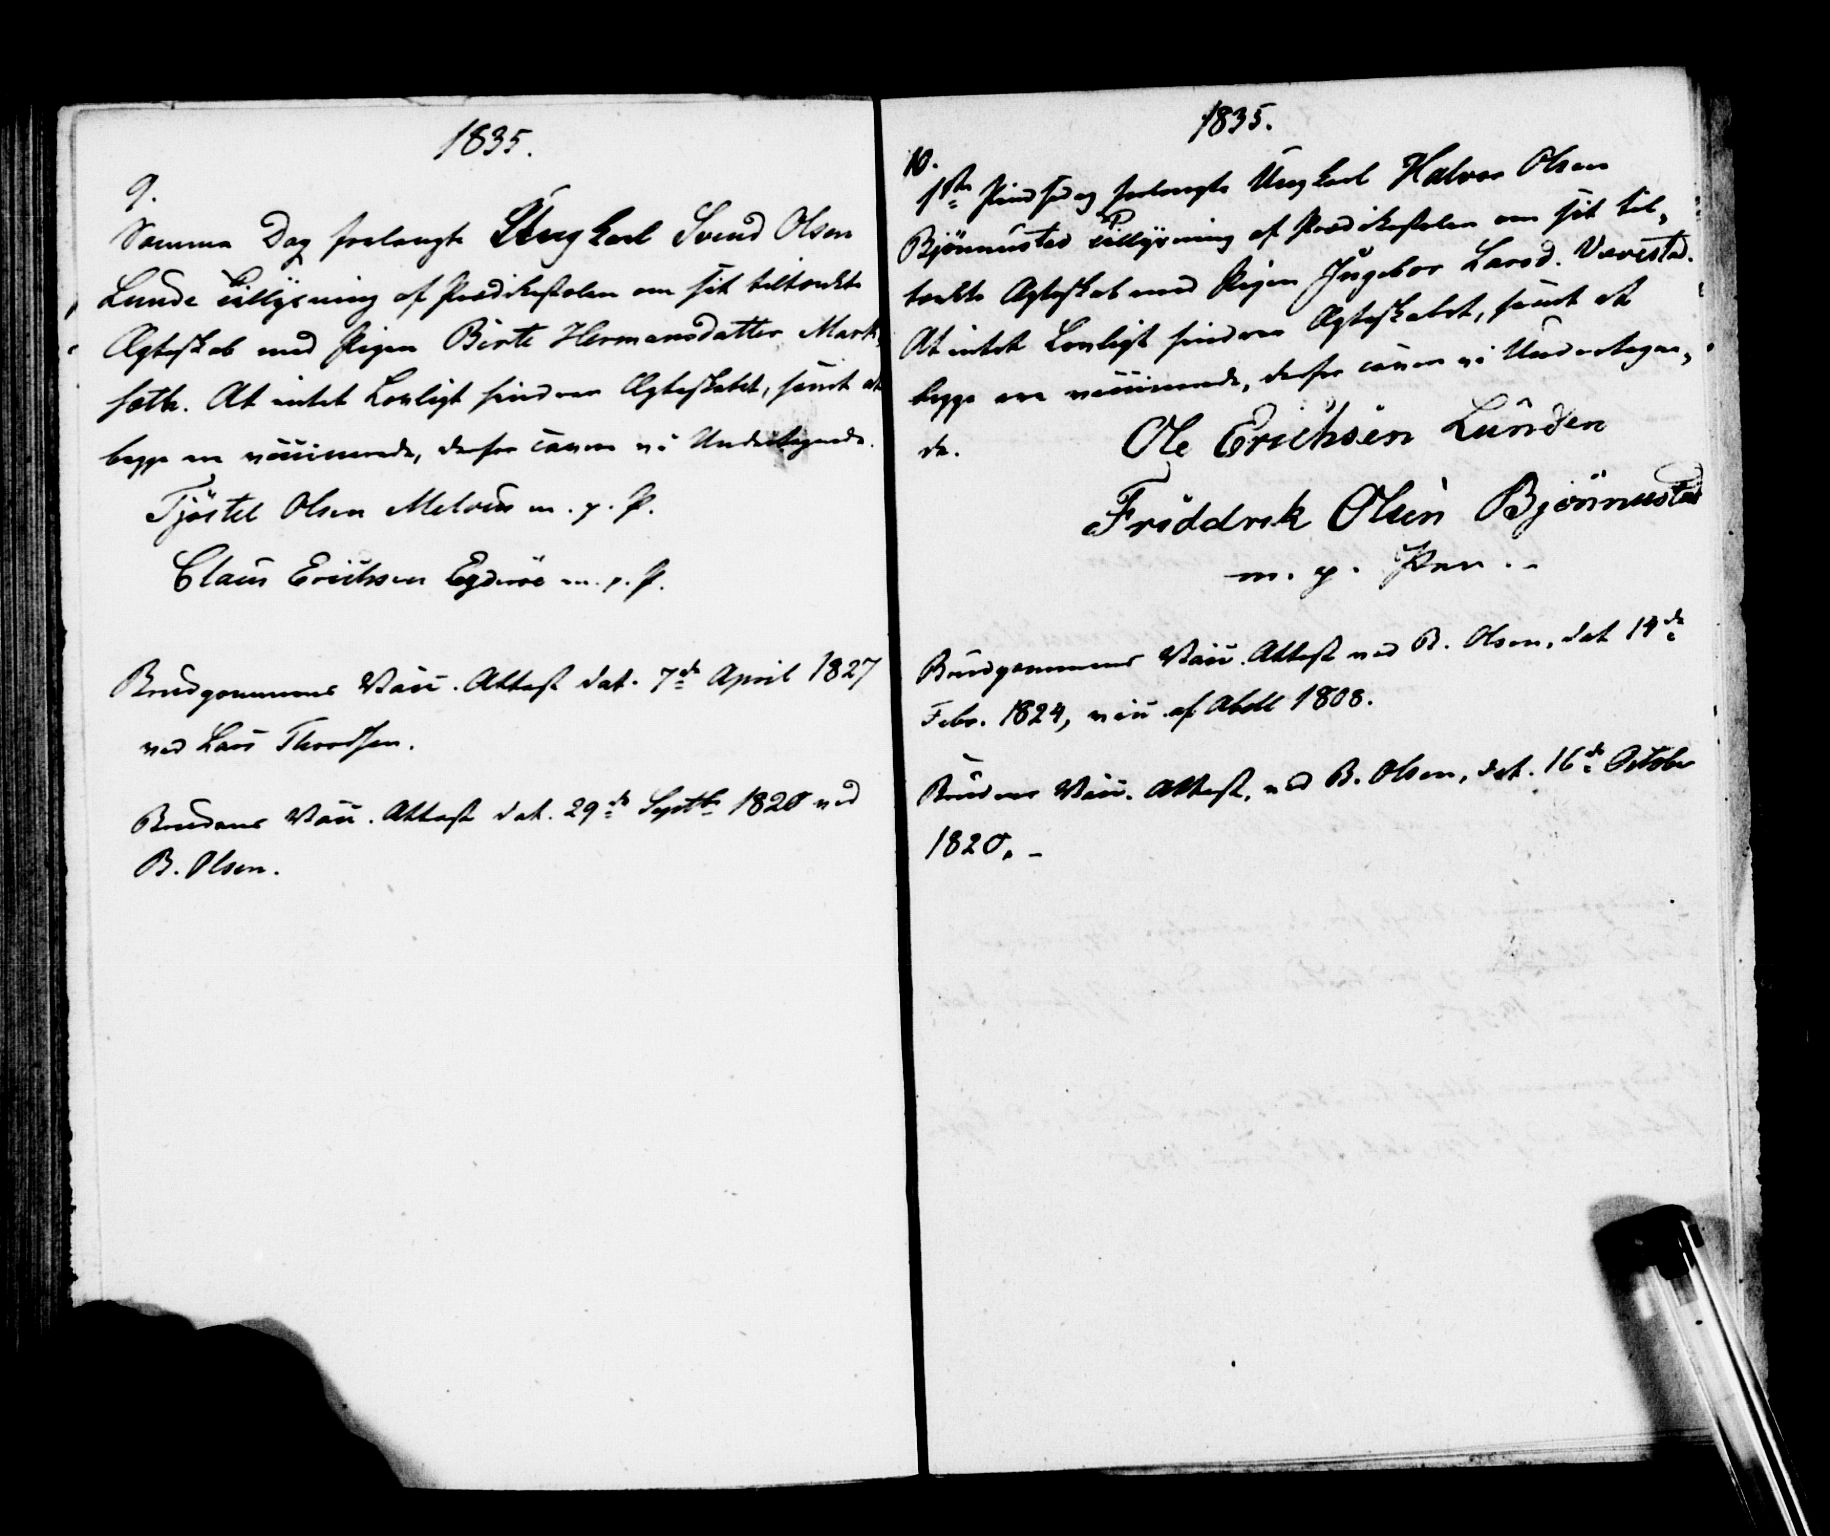 1835.
9.
Samme Dag forlangte Ungkarl Svend Olsen
Lunde Tillysning af Prædikestolen om sit tiltænkte
Ægteskab med Pigen Birte Hermansdatter Mark,
sæth. At intet Lovligt hindrer Ægteskabet, samt at
begge ere vaccinerede, derfor cavere vi Undertegnede.
Tjöstel Olsen Melvus m. p. P.
Claus Erichsen Egderöe m. p. P.
Brudgommens Vacc. Attest dat. 7de April 1827
ved Lars Thordsen.
Brudens Vacc. Attest dat. 29de Septbr 1820 ved
B. Olsen.
1835.
10.
1ste Pindsedag forlangte Ungkarl Halvor Olsen
Björnnustad Tillysning af Prædikestolen om sit til,
tænkte Ægteskab med Pigen Ingebor Larsd. Værestad.
At intet Lovligt hindrer Ægteskabet, samt at
begge ere vaccinerede, derfor cavere vi Undertegne,
de.
Ole Erichsen Lunden
Fröddrek Olsen Björnnustad
m. p. Pen. -
Brudgommens Vacc. Attest ved B. Olsen, dat 14de
Febr. 1824, vacc. af Abell 1808.
Brudens Vacc. Attest, ved B. Olsen, dat. 16de October
1820. -